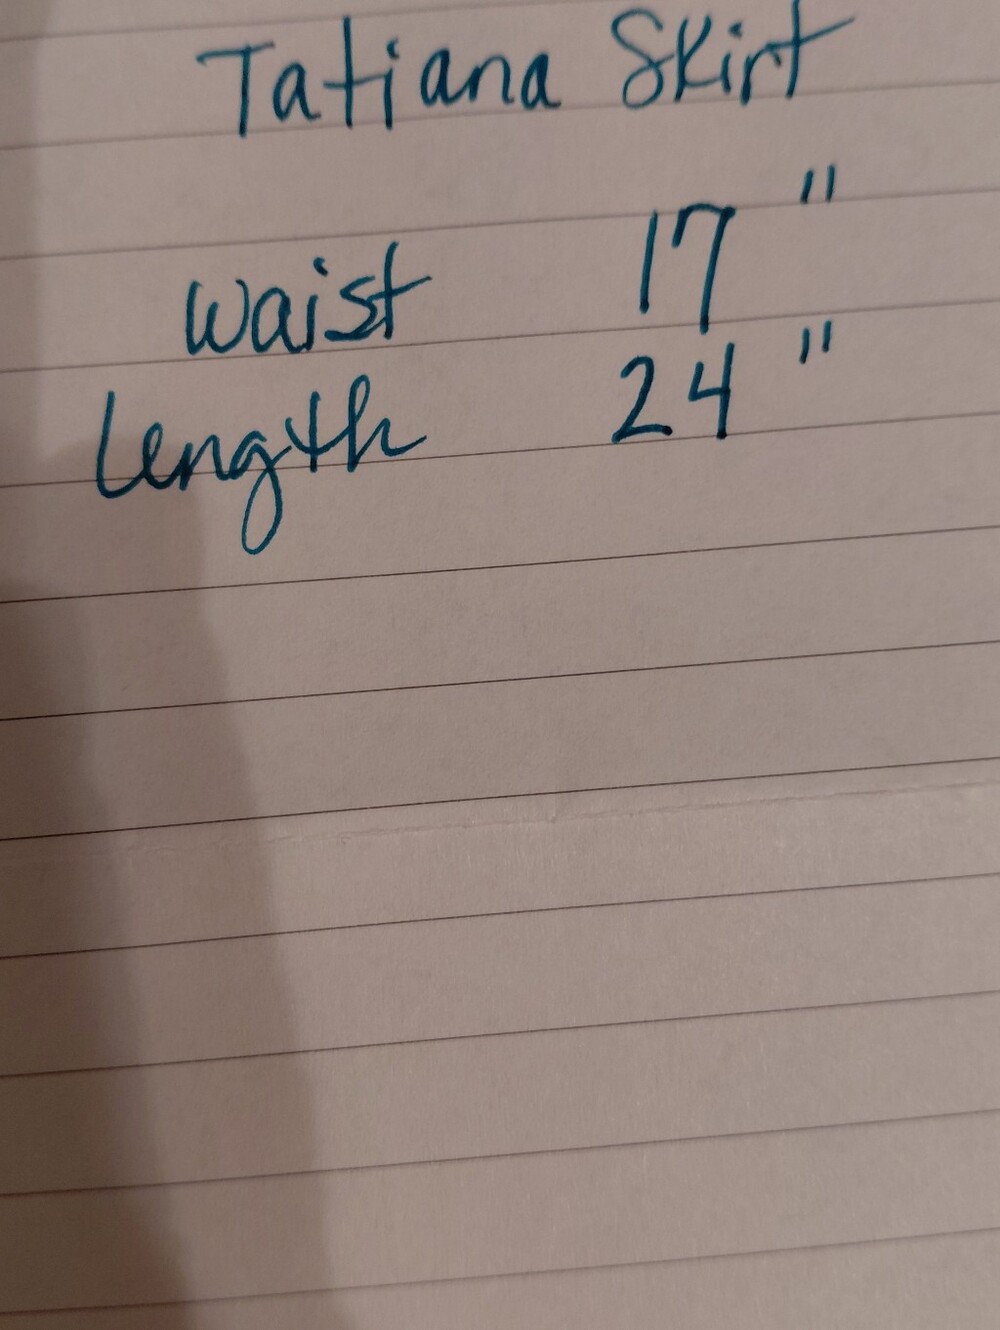 Tatiana Skirt
waist 17"
length 24"